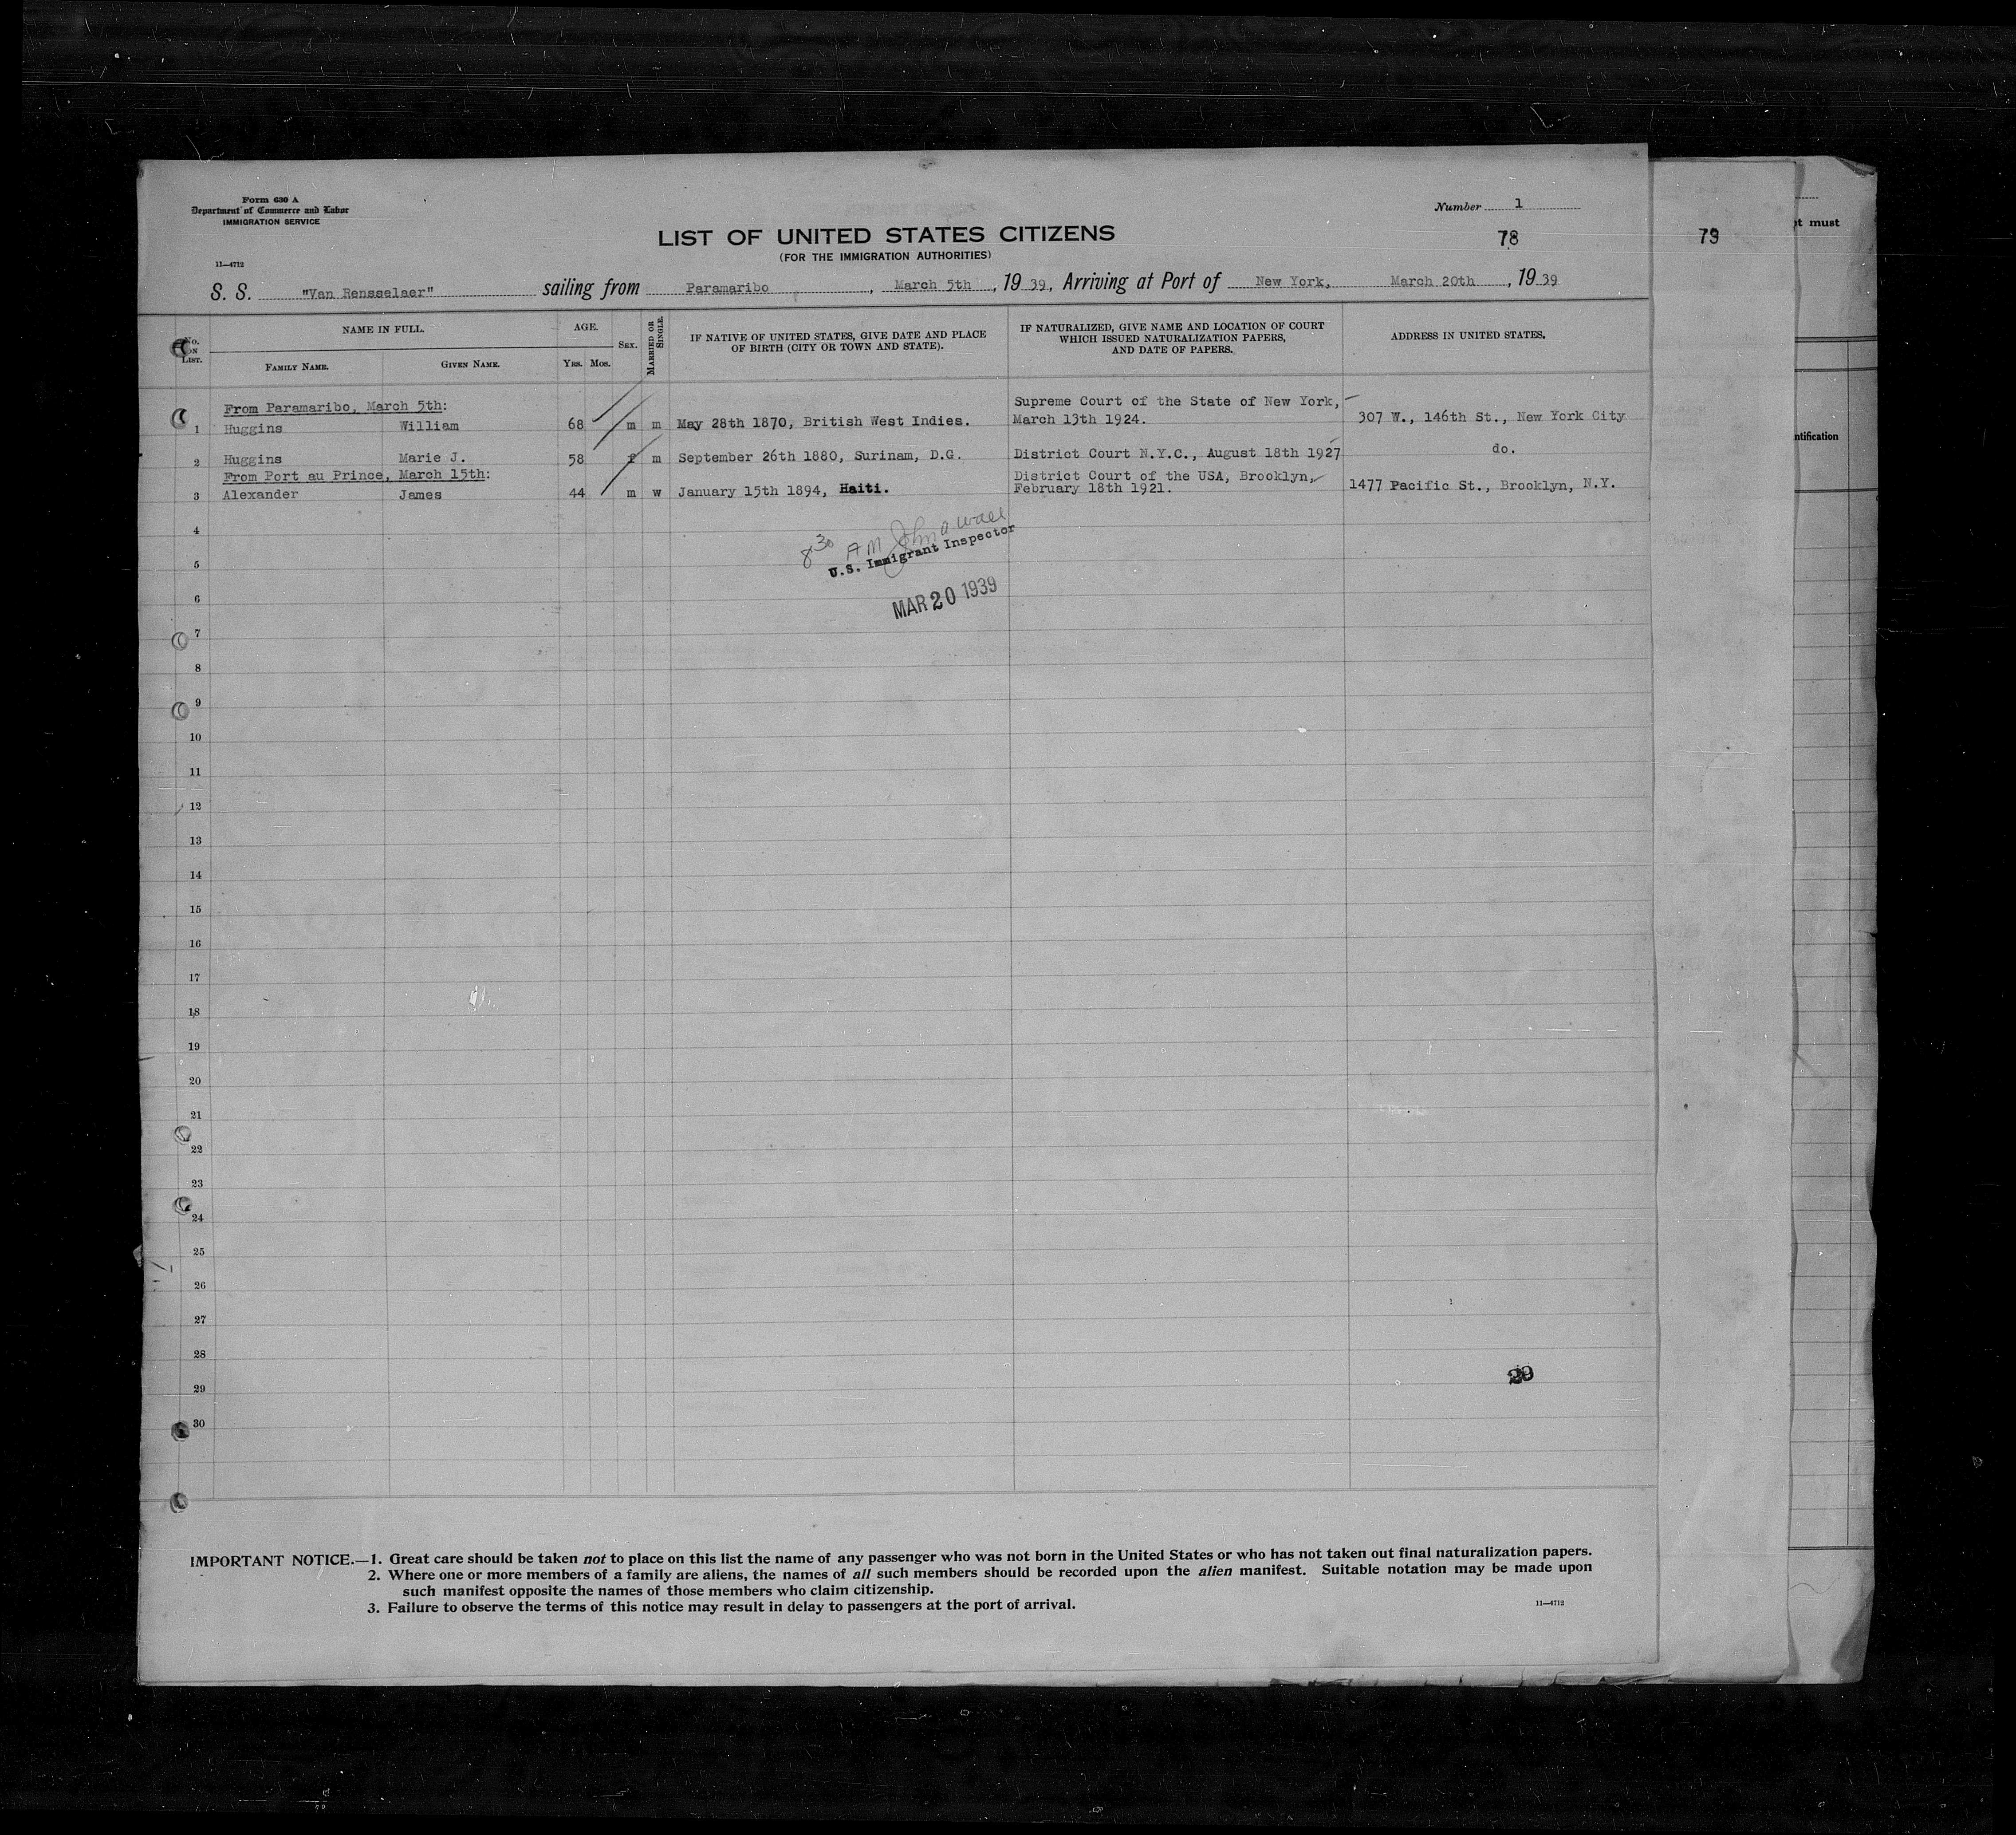 Form 630 A
Department of Commerce and Labor
IMMIGRATION SERVICE
Number 1
LIST OF UNITED STATES CITIZENS
78
79
t must
(FOR THE IMMIGRATION AUTHORITIES)
11—4712
S. S. "Van Rensselaer" sailing from Paramaribo, March 5th, 1939, Arriving at Port of New York, March 20th, 1939
No. on List.
NAME IN FULL.
AGE.
Sex.
Married or Single.
IF NATIVE OF UNITED STATES, GIVE DATE AND PLACE
OF BIRTH (CITY OR TOWN AND STATE).
IF NATURALIZED, GIVE NAME AND LOCATION OF COURT
WHICH ISSUED NATURALIZATION PAPERS,
AND DATE OF PAPERS.
ADDRESS IN UNITED STATES.
Family Name. Given Name. Yrs. Mos.
From Paramaribo, March 5th:
Supreme Court of the State of New York,
1 Huggins William 68 m m May 28th 1870, British West Indies. March 13th 1924. 307 W., 146th St., New York City
2 Huggins Marie J. 58 f m September 26th 1880, Surinam, D.G. District Court N.Y.C., August 18th 1927 do.
ntification
From Port au Prince, March 15th:
District Court of the USA, Brooklyn,
3 Alexander James 44 m w January 15th 1894, Haiti. February 18th 1921. 1477 Pacific St., Brooklyn, N.Y.
4
8 30 AM John a wall
U.S. Immigrant Inspector
5
MAR 20 1939
6
7
8
9
10
11
12
13
14
15
16
17
18
19
20
21
22
23
24
25
26
27
28
29
29
30
IMPORTANT NOTICE.—1. Great care should be taken not to place on this list the name of any passenger who was not born in the United States or who has not taken out final naturalization papers.
2. Where one or more members of a family are aliens, the names of all such members should be recorded upon the alien manifest. Suitable notation may be made upon
such manifest opposite the names of those members who claim citizenship.
3. Failure to observe the terms of this notice may result in delay to passengers at the port of arrival.
11—4712